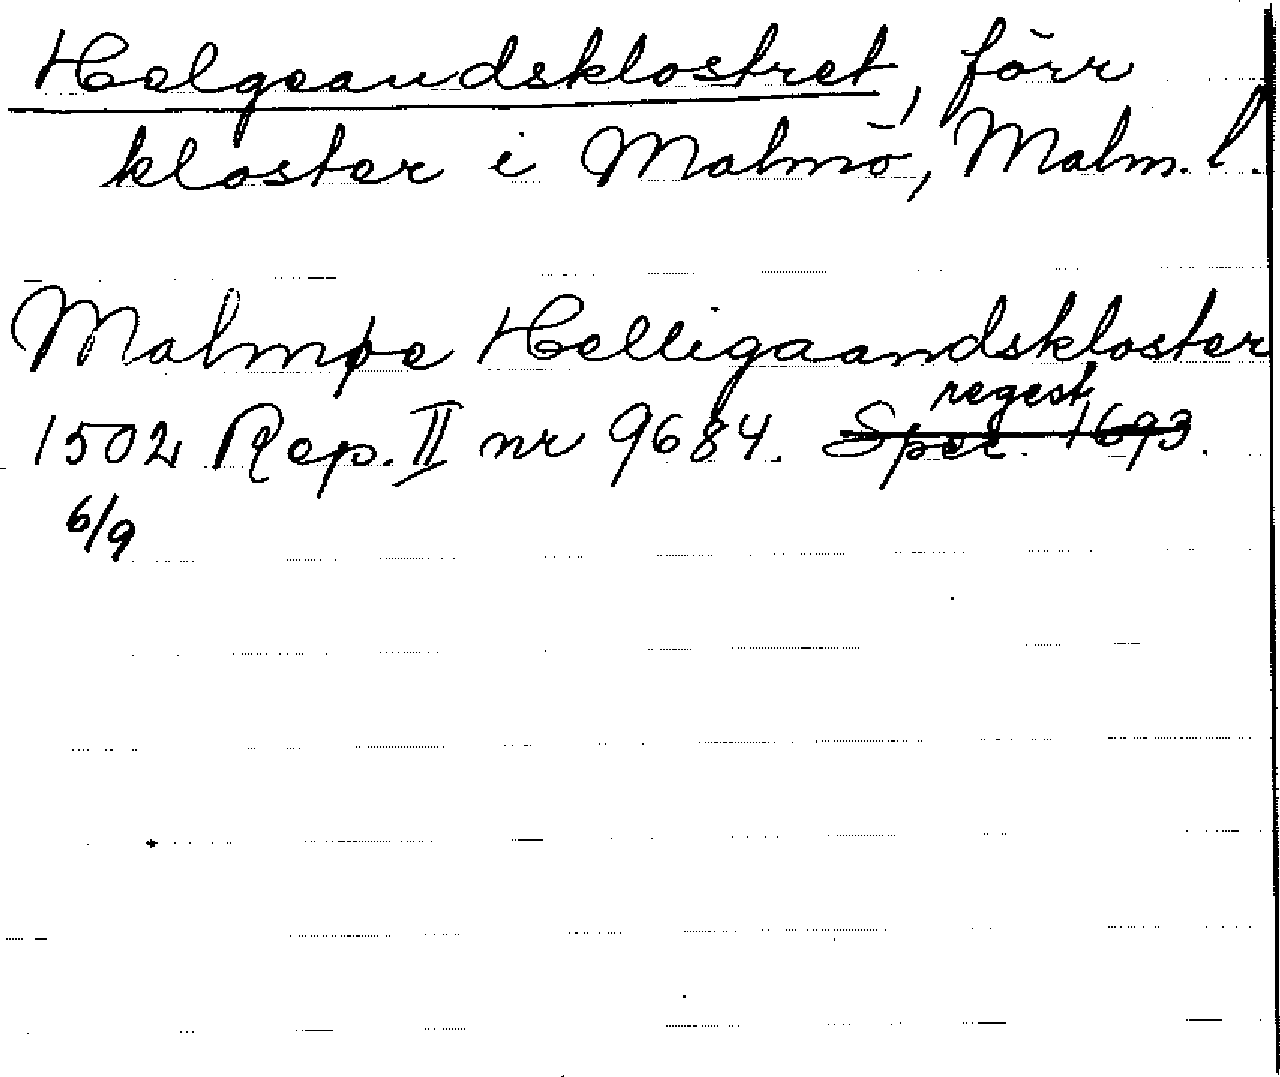 Helgeandsklostret, förr
kloster i Malmö, Malm. l.
Malmøe Helligaandskloster
regest
1502 Rep. II nr 9684. Spec. 1693.
6/9